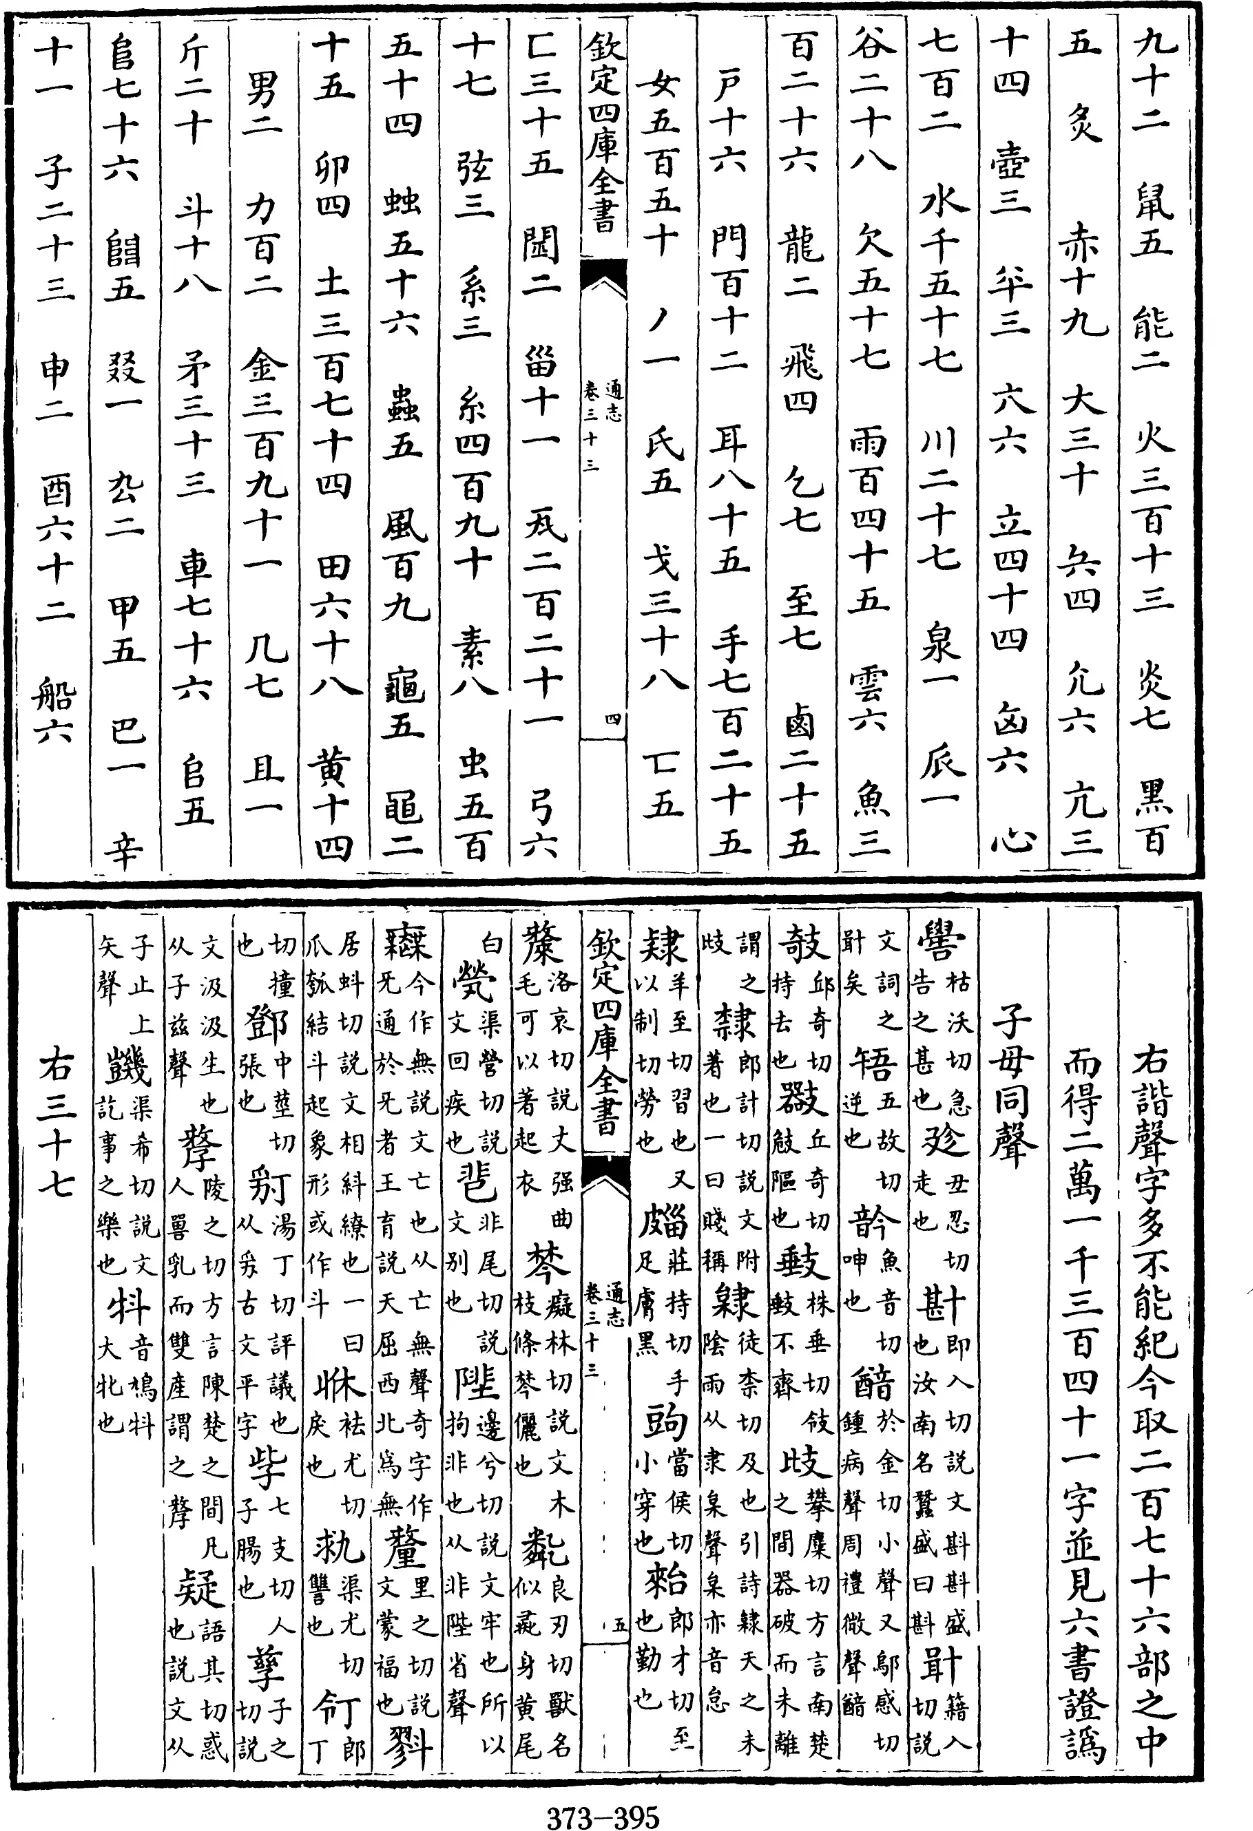 九十二　鼠五　能二　火三百十三　炎七　黑百
五　炙　赤十九　大三十　㒫四　尣六　亢三
十四　壺三　㚔三　六六　立四十四　囟六　心
七百二　水千五十七　川二十七　泉一　𠂢一
谷二十八　欠五十七　雨百四十五　雲六　魚三
百二十六　龍二　飛四　乞七　至七　鹵二十五
戸十六　門百十二　耳八十五　手七百二十五
女五百五十　丿一　氏五　戈三十八　匸五
欽定四庫全書
通志
卷三十三
四
匚三十五　二　甾十一　瓦二百二十一　弓六
十七　弦三　系三　糸四百九十　素八　虫五百
五十四　䖵五十六　蟲五　風百九　龜五　黽二
十五　卯四　土三百七十四　田六十八　黄十四
男二　力百二　金三百九十一　几七　且一
斤二十　斗十八　矛三十三　車七十六　𠂤五
𨸏七十六　𨺅五　叕一　厹二　甲五　巴一　辛
十一　子二十三　申二　酉六十二　船六
右諧聲字多不能紀今取二百七十六部之中
而得二萬一千三百四十一字並見六書證譌
子母同聲
嚳枯沃切急告之甚也　丑忍切走也　斟即入切説文斟斟盛也汝南名蠶盛曰斟　籍入切説
文詞之矣　啎五故切逆也　䪩魚音切呻也　韽於金切小聲又鄔感切鍾病聲周禮微聲韽
攲丘奇切持去也　丘奇切㩻䧢也　株垂切攲不齊　攀麋切方言南楚之間器破而未離
謂之歧　隸郎計切説文附著也一曰賤稱　隶徒柰切及也引詩隸天之未陰雨从隶枲聲枲亦音怠
肄羊至切習也又以制切勞也　莊持切手足膚黑　當侯切小穿也　勑郎才切至也勤也
欽定四庫全書
通志
卷三十三
五
斄洛哀切説文强曲毛可以著起衣　棽癡林切説文木枝條棽儷也　良刃切獸名似彘身黄尾
白　煢渠營切説文回疾也　非尾切説文别也　陛邊兮切説文牢也所以拘非也从非陛省聲
今作無説文亡也从亡無聲奇字作无通於无者王育説天屈西北爲無　釐里之切説文蒙福也
居蚪切説文相糾繚也一曰瓜瓠結斗起象形或作斗　袪尤切戾也　渠尤切讐也　郎丁
切撞也　中莖切張也　湯丁切評議也从古文平字　七支切人子腸也　孳子之切説
文汲汲生也从子兹聲　孷陵之切方言陳楚之間凡人嘼乳而雙産謂之孷　疑語其切惑也説文从
子止上矢聲　渠希切説文訖事之樂也　音鳩牪大牝也
右三十七
373-395